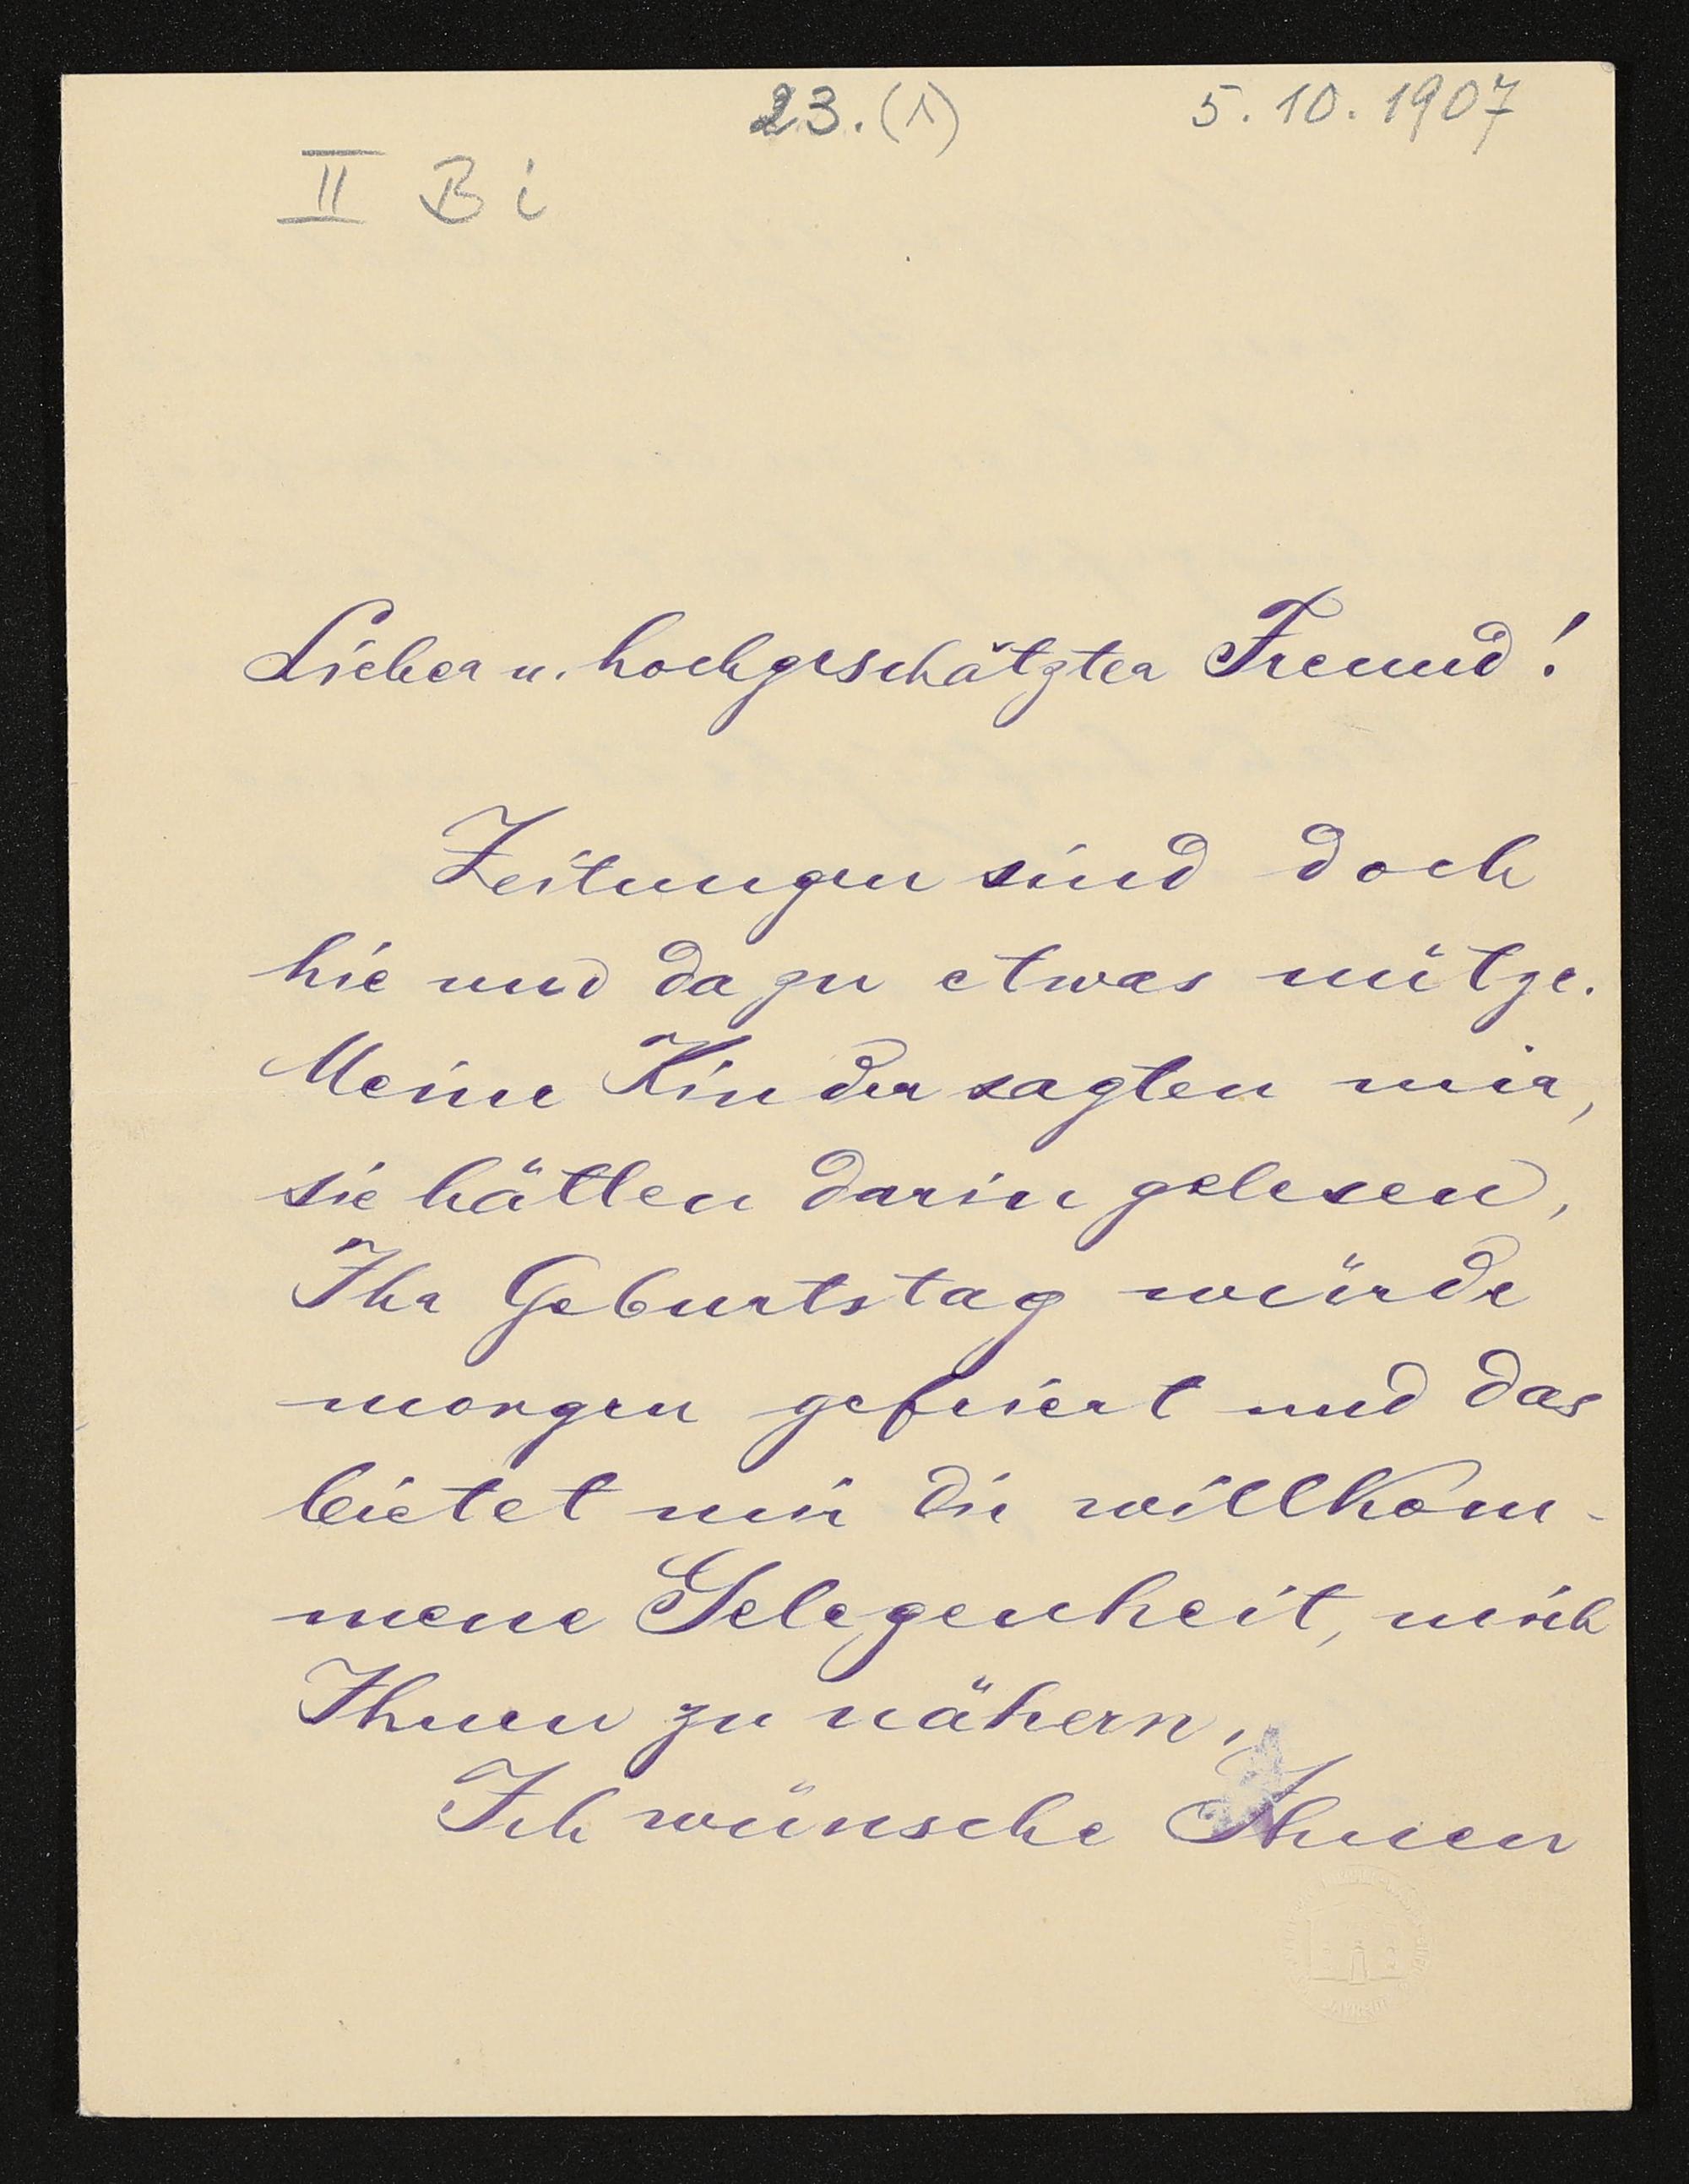 23. (1) 5.10.1907
II B i
Lieber u. hochgeschätzter Freund!
Zeitungen sind doch
hie und da zu etwas nütze.
Meine Kinder sagten mir,
sie hätten darin gelesen,
Ihr Geburtstag würde
morgen gefeiert und das
bietet mir die willkom-
mene Gelegenheit, mich
Ihnen zu nähern.
Ich wünsche Ihnen